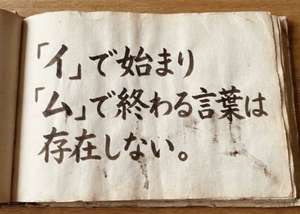 「イ」で始まり
「ム」で終わる言葉は
存在しない。